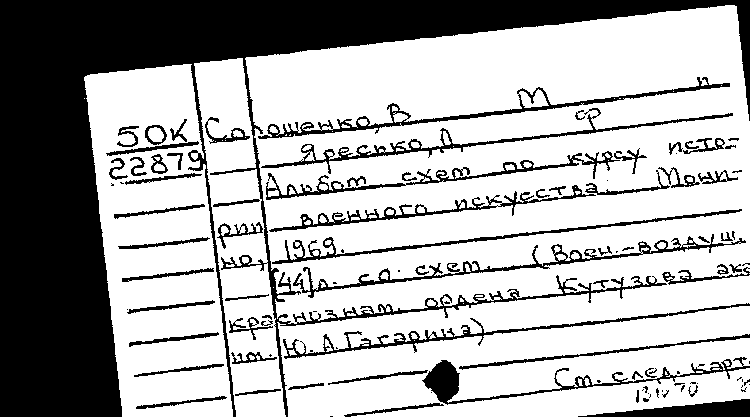 М п
50К Сорошенко, В ср
22879 Яресько, Д
Альбом схем по курсу исто-
рии военного искусства. Мони-
но, 1969.
[44]л. со. схем. (Воен.-воздуш.
краснознам. ордена Кутузова ака
им. Ю.А.Гагарина)
См. след. карт.
13 IV 70